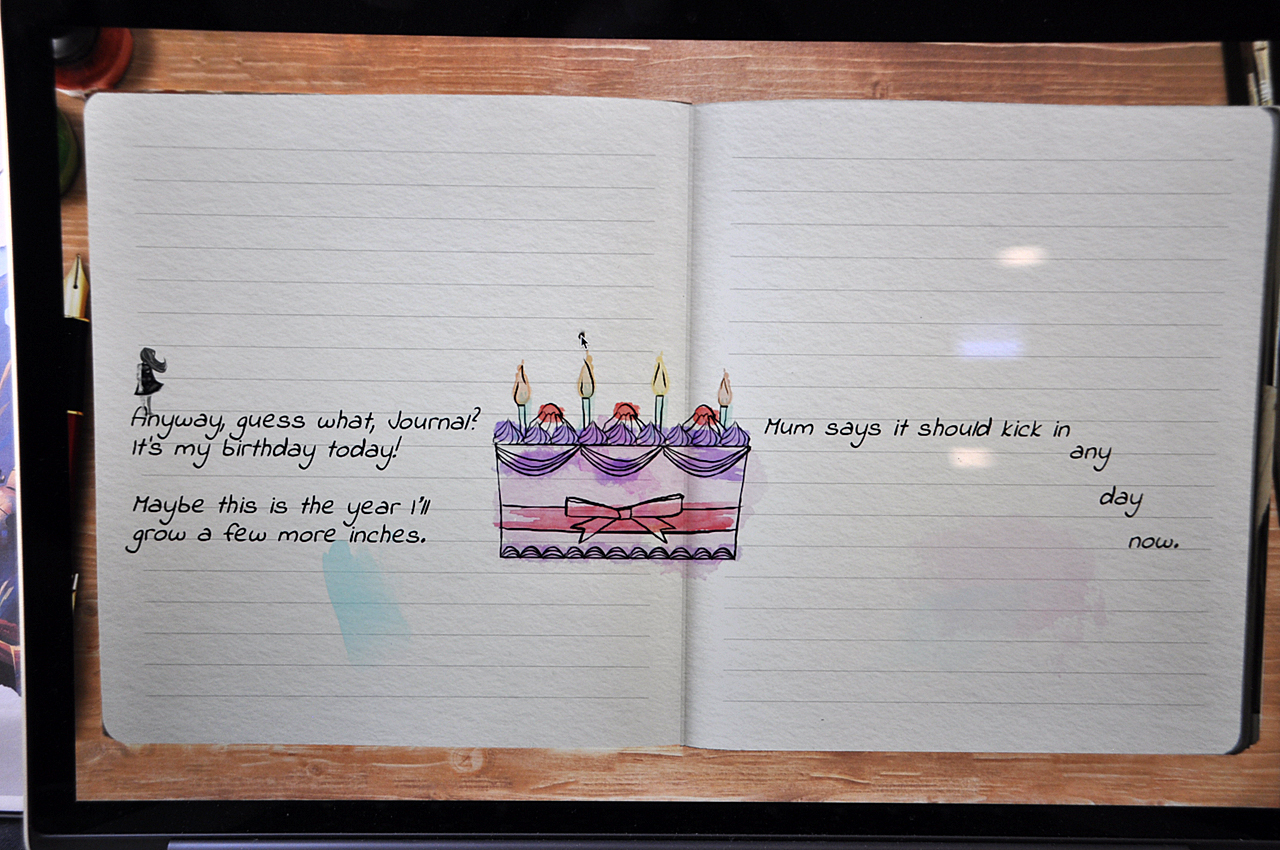 Anyway, guess what, Journal?
It's my birthday today!
Maybe this is the year I'll
grow a few more inches.
Mum says it should kick in
any
day
now.